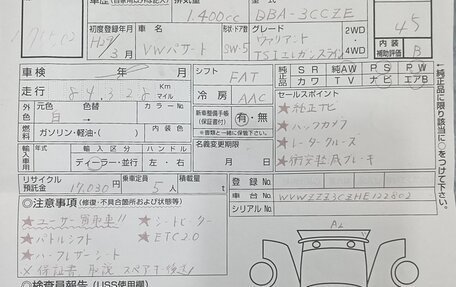 車歴
排気量
1,400cc
DBA-3CCZE
45
初度登録年月
H29/3月
車名
VWパサート
形状ドア数
SW-5
グレード
ヴァリアント
TSIエレガンスライン
2WD
4WD
内装
補助評価
B
車検 年 月
シフト
FAT
純正品
SR 純AW PS PW
カワ TV ナビ エアB
走行 84,328 Km マイル
冷房
AAC
セールスポイント
★純正ナビ
★バックカメラ
★レーダークルーズ
★衝突軽減ブレーキ
外色
元色 色替
白→
カラーNo
新車整備手帳
(保証書付)
有・無
※書類と一緒に保管下さい。
燃料
ガソリン・軽油・( )
輸入車用
輸入区分
ハンドル
ディーラー・並行
左・右
名義変更期限
月 日
←純正品に限り該当に○をつけて下さい。
リサイクル預託金
17,030円
乗車定員
5人
積載量
t
登録No
車台No
WVWZZZ3CZHE122802
シリアルNo
◎注意事項(修復・不具合箇所および状態等)
★ユーザー買取車!!
★シートヒーター
★パドルシフト
★ETC2.0
★ハーフレザーシート
※保証書 取説 スペアキー後送り
A2
◎検査員報告(USS使用欄)